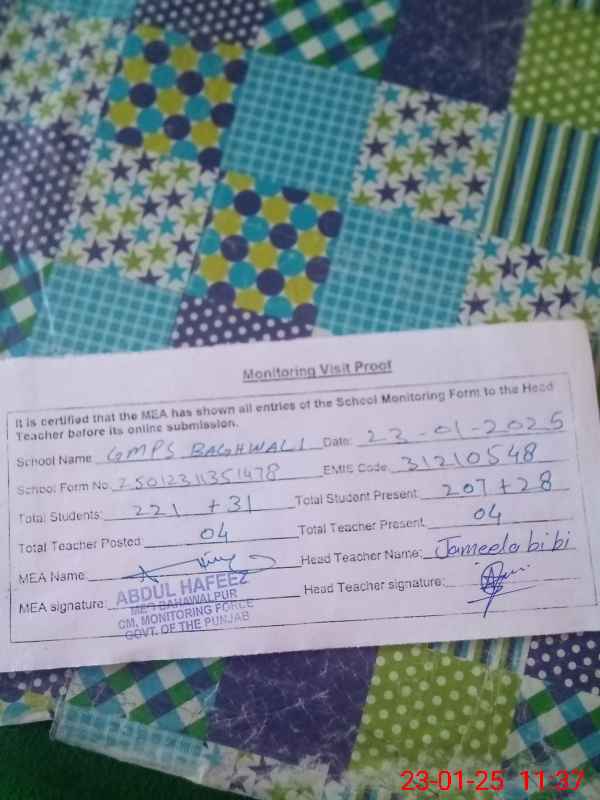 Monitoring Visit Proof
It is certified that the MEA has shown all entries of the School Monitoring Form to the Head
Teacher before its online submission.
School Name GMPS BAGHWALI Date: 23-01-2025
School Form No. 25012311351478 EMIS Code 31210548
Total Students: 221 + 31 Total Student Present 207 + 28
Total Teacher Posted: 04 Total Teacher Present 04
MEA Name: Head Teacher Name: Jameela bibi
MEA signature: Head Teacher signature:
ABDUL HAFEEZ
MEA BAHAWALPUR
CM, MONITORING FORCE
GOVT. OF THE PUNJAB
23-01-25 11:37